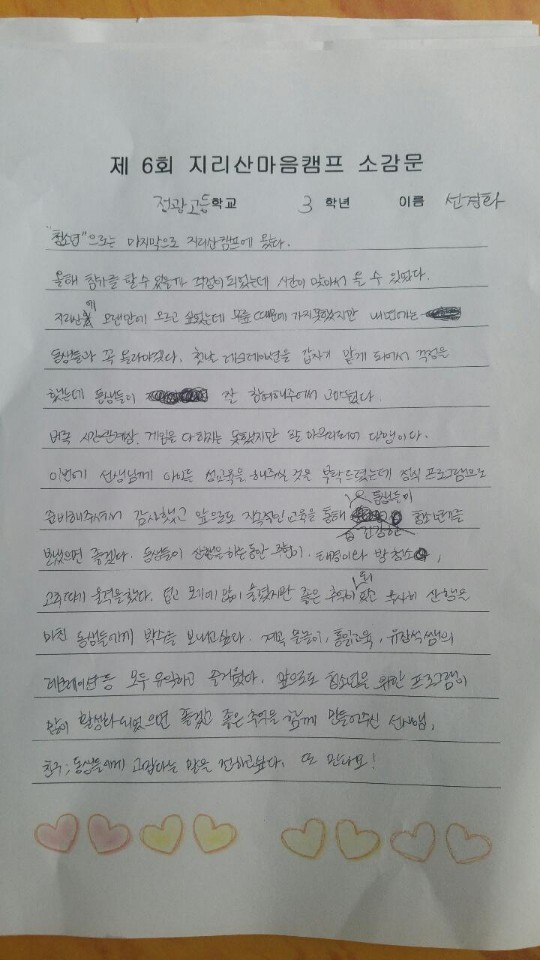 제 6회 지리산마음캠프 소감문
전광고등학교 3 학년 이름 선경화
"청소년"으로는 마지막으로 지리산캠프에 왔다.
올해 참여를 할 수 있을까 걱정이 되었는데 시간이 맞아서 올 수 있었다.
지리산에 오랜만에 오르고 싶었는데 무릎 때문에 가지 못했지만 내년에는
동생들과 꼭 올라야겠다. 첫날 레크레이션을 갑자기 맡게 되어서 걱정을
했는데 동생들이 잘 참여해주어서 고마웠다.
비록 시간관계상, 게임을 다 하지는 못했지만 잘 마무리되어 다행이다.
이번에 선생님께 아이들 성교육을 해주실 것을 부탁드렸는데 정식 프로그램으로
준비해주셔서 감사했고 앞으로도 지속적인 교육을 통해 동생들이 건강한 청소년기를
보냈으면 좋겠다. 동생들이 산행을 하는동안 태경이와 방 청소,
고추따기 울력을 했다. 덥고 모기에 많이 물렸지만 좋은 추억이 되 무사히 산행을
마친 동생들에게 박수를 보내고 싶다. 계곡 물놀이, 통일교육, 유장식쌤의
레크레이션 등 모두 유익하고 즐거웠다. 앞으로도 청소년을 위한 프로그램이
많이 활성화 되었으면 좋겠고 좋은 추억을 함께 만들어주신 선생님,
친구, 동생들에게 고맙다는 말을 전하고 싶다. 또 만나요!